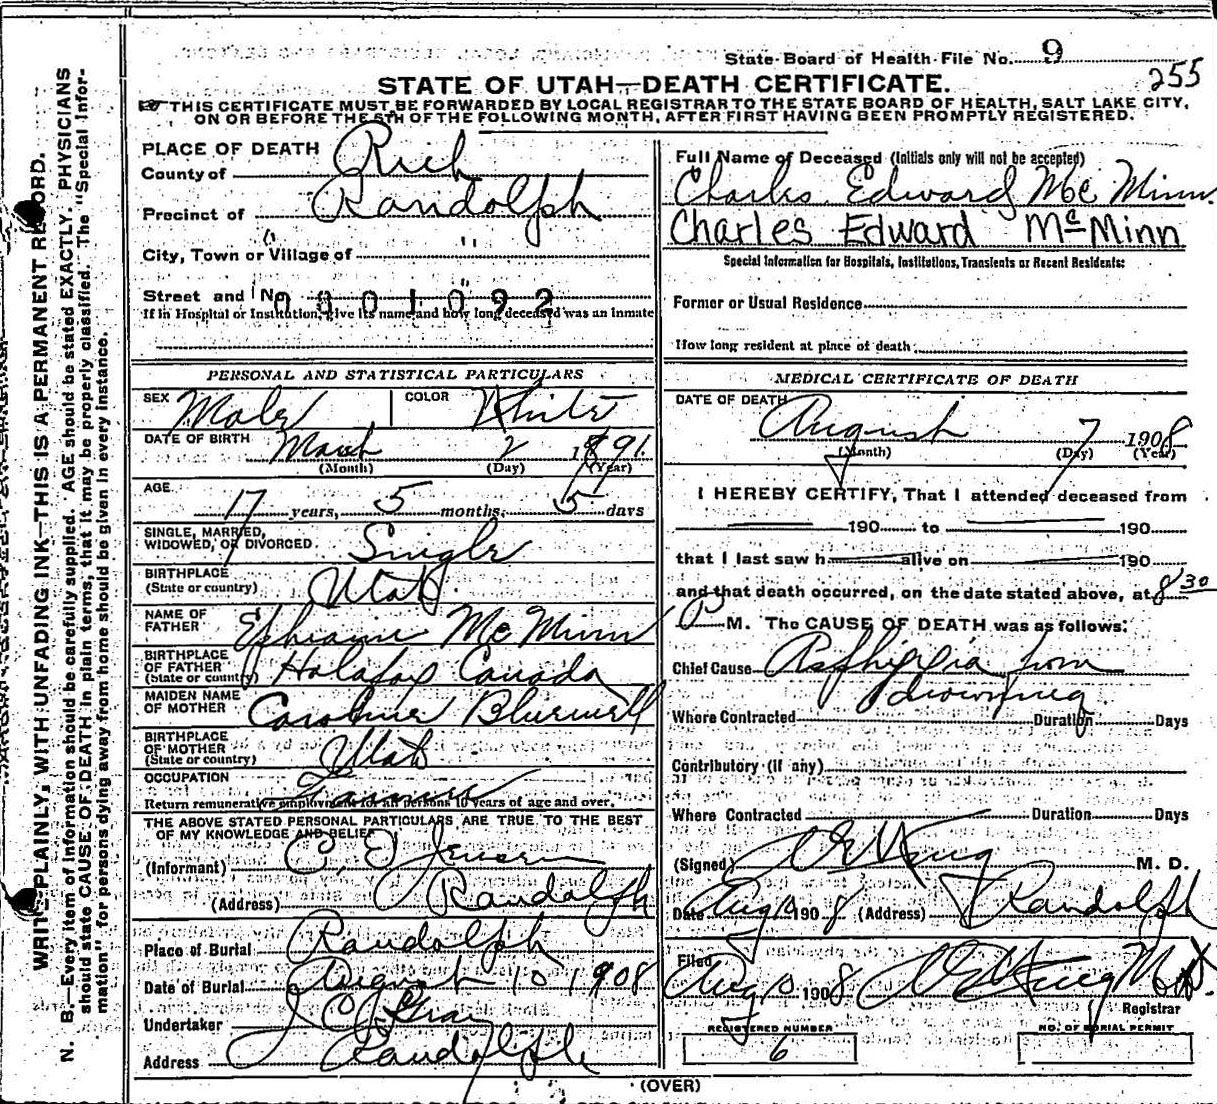 State Board of Health File No. 9
255
STATE OF UTAH—DEATH CERTIFICATE.
THIS CERTIFICATE MUST BE FORWARDED BY LOCAL REGISTRAR TO THE STATE BOARD OF HEALTH, SALT LAKE CITY,
ON OR BEFORE THE 5TH OF THE FOLLOWING MONTH, AFTER FIRST HAVING BEEN PROMPTLY REGISTERED.
WRITE PLAINLY, WITH UNFADING INK—THIS IS A PERMANENT RECORD.
N. B.—Every item of information should be carefully supplied. AGE should be stated EXACTLY. PHYSICIANS
should state CAUSE OF DEATH in plain terms, that it may be properly classified. The "Special Infor-
mation" for persons dying away from home should be given in every instance.
PLACE OF DEATH
County of Rich
Precinct of Randolph
City, Town or Village of " "
Street and No.
0001092
If in Hospital or Institution, give its name and how long deceased was an inmate
PERSONAL AND STATISTICAL PARTICULARS
SEX Male COLOR White
DATE OF BIRTH March 2 1891
(Month) (Day) (Year)
AGE
17 years, 5 months, 5 days
SINGLE, MARRIED,
WIDOWED, or DIVORCED Single
BIRTHPLACE
(State or country) Utah
NAME OF
FATHER Ephraim Mc Minn
BIRTHPLACE
OF FATHER
(State or country) Halafax Canada
MAIDEN NAME
OF MOTHER Caroline
BIRTHPLACE
OF MOTHER
(State or country) Utah
OCCUPATION Farmer
Return remunerative employment for all persons 10 years of age and over.
THE ABOVE STATED PERSONAL PARTICULARS ARE TRUE TO THE BEST
OF MY KNOWLEDGE AND BELIEF
(Informant) C. E. Jensen
(Address) Randolph
Place of Burial Randolph
Date of Burial August 10 1908
Undertaker J C Gray
Address Randolph
Full Name of Deceased (Initials only will not be accepted)
Charles Edward Mc Minn
Charles Edward McMinn
Special Information for Hospitals, Institutions, Transients or Recent Residents:
Former or Usual Residence
How long resident at place of death
MEDICAL CERTIFICATE OF DEATH
DATE OF DEATH
August 7 1908
(Month) (Day) (Year)
I HEREBY CERTIFY, That I attended deceased from
190 to 190
that I last saw h alive on 190
and that death occurred, on the date stated above, at 8 30
P M. The CAUSE OF DEATH was as follows:
Chief Cause Asfhixia from
drowning
Where Contracted Duration Days
Contributory (if any)
Where Contracted Duration Days
(Signed) M. D.
Date Aug 10 1908 (Address) Randolph
Filed
Aug 10 1908
Registrar
REGISTERED NUMBER
6
NO. OF BURIAL PERMIT
(OVER)